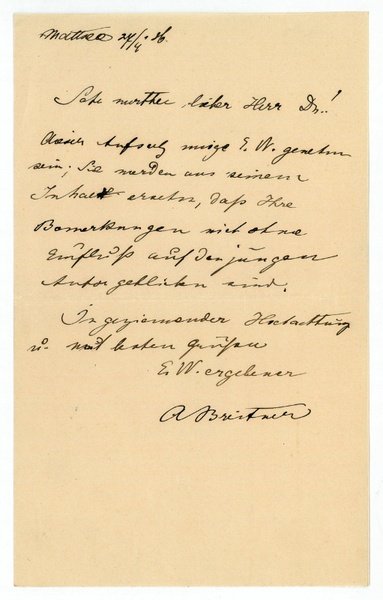 Mattsee 27/4. 26.
Sehr werther, lieber Herr Dr.!
dieser Aufsatz möge E. W. genehm
sein; Sie werden aus seinem
Inhalt ersehn, daß Ihre
Bemerkungen nicht ohne
Einfluß auf den jungen
Autor geblieben sind.
In geziemender Hochachtung
u. mit besten Grüßen
E. W. ergebener
A Breitner